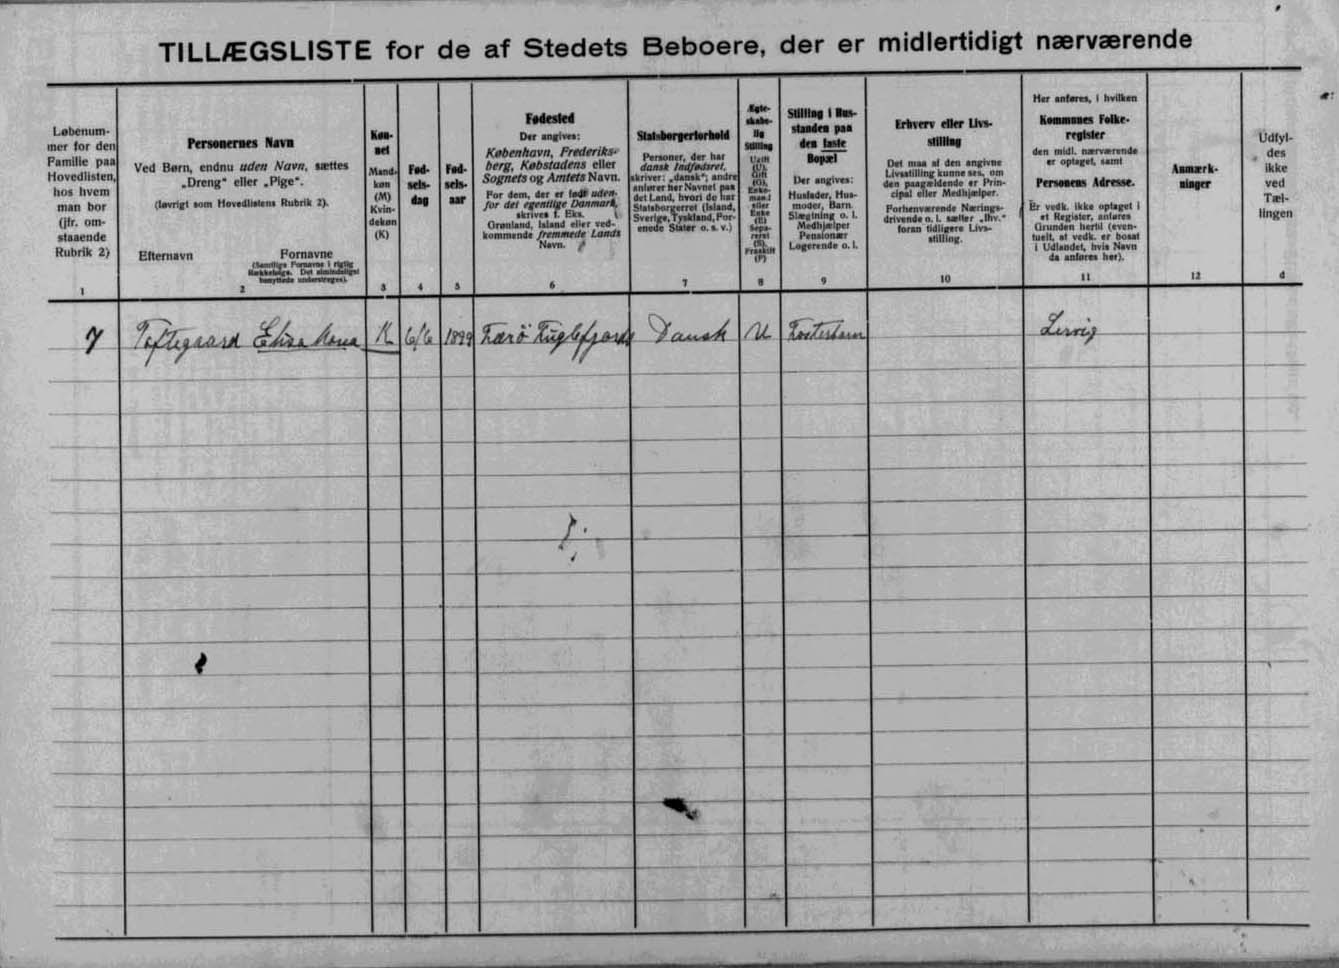 TILLÆGSLISTE for de af Stedets Beboere, der er midlertidigt nærværende
Løbenum-
mer for den
Familie paa
Hovedlisten,
hos hvem
man bor
(jfr. om-
staaende
Rubrik 2)
1
Personernes Navn
Ved Børn, endnu uden Navn, sættes
„Dreng“ eller „Pige“.
(Iøvrigt som Hovedlistens Rubrik 2).
Efternavn
Fornavne
(Samtlige Fornavne i rigtig
Rækkefølge. Det almindeligst
benyttede understreges).
2
Køn-
net
Mand-
køn
(M)
Kvin-
dekøn
(K)
3
Fød-
sels-
dag
4
Fød-
sels-
aar
5
Fødested
Der angives:
København, Frederiks-
berg, Købstadens eller
Sognets og Amtets Navn.
For dem, der er født uden-
for det egentlige Danmark,
skrives f. Eks.
Grønland, Island eller ved-
kommende fremmede Lands
Navn.
6
Statsborgerforhold
Personer, der har
dansk Indfødsret,
skriver: „dansk“; andre
anfører her Navnet paa
det Land, hvori de har
Statsborgerret (Island,
Sverige, Tyskland, For-
enede Stater o. s. v.)
7
Ægte-
skabe-
lig
Stilling
Ugift
(U),
Gift
(G),
Enke-
mand
eller
Enke
(E)
Sepa-
reret
(S),
Fraskilt
(F)
8
Stilling i Hus-
standen paa
den faste
Bopæl
Der angives:
Husfader, Hus-
moder, Barn,
Slægtning o. l.
Medhjælper
Pensionær
Logerende o. l.
9
Erhverv eller Livs-
stilling
Det maa af den angivne
Livsstilling kunne ses, om
den paagældende er Prin-
cipal eller Medhjælper.
Forhenværende Nærings-
drivende o. l. sætter „fhv.“
foran tidligere Livs-
stilling.
10
Her anføres, i hvilken
Kommunes Folke-
register
den midl. nærværende
er optaget, samt
Personens Adresse.
Er vedk. ikke optaget i
et Register, anføres
Grunden hertil (even-
tuelt, at vedk. er bosat
i Udlandet, hvis Navn
da anføres her).
11
Anmærk-
ninger
12
Udfyl-
des
ikke
ved
Tæl-
lingen
d
7 Toftegaard Elisa Mona K 6/6 1899 Færö Fuglefjord Dansk U Fosterbarn Lervig